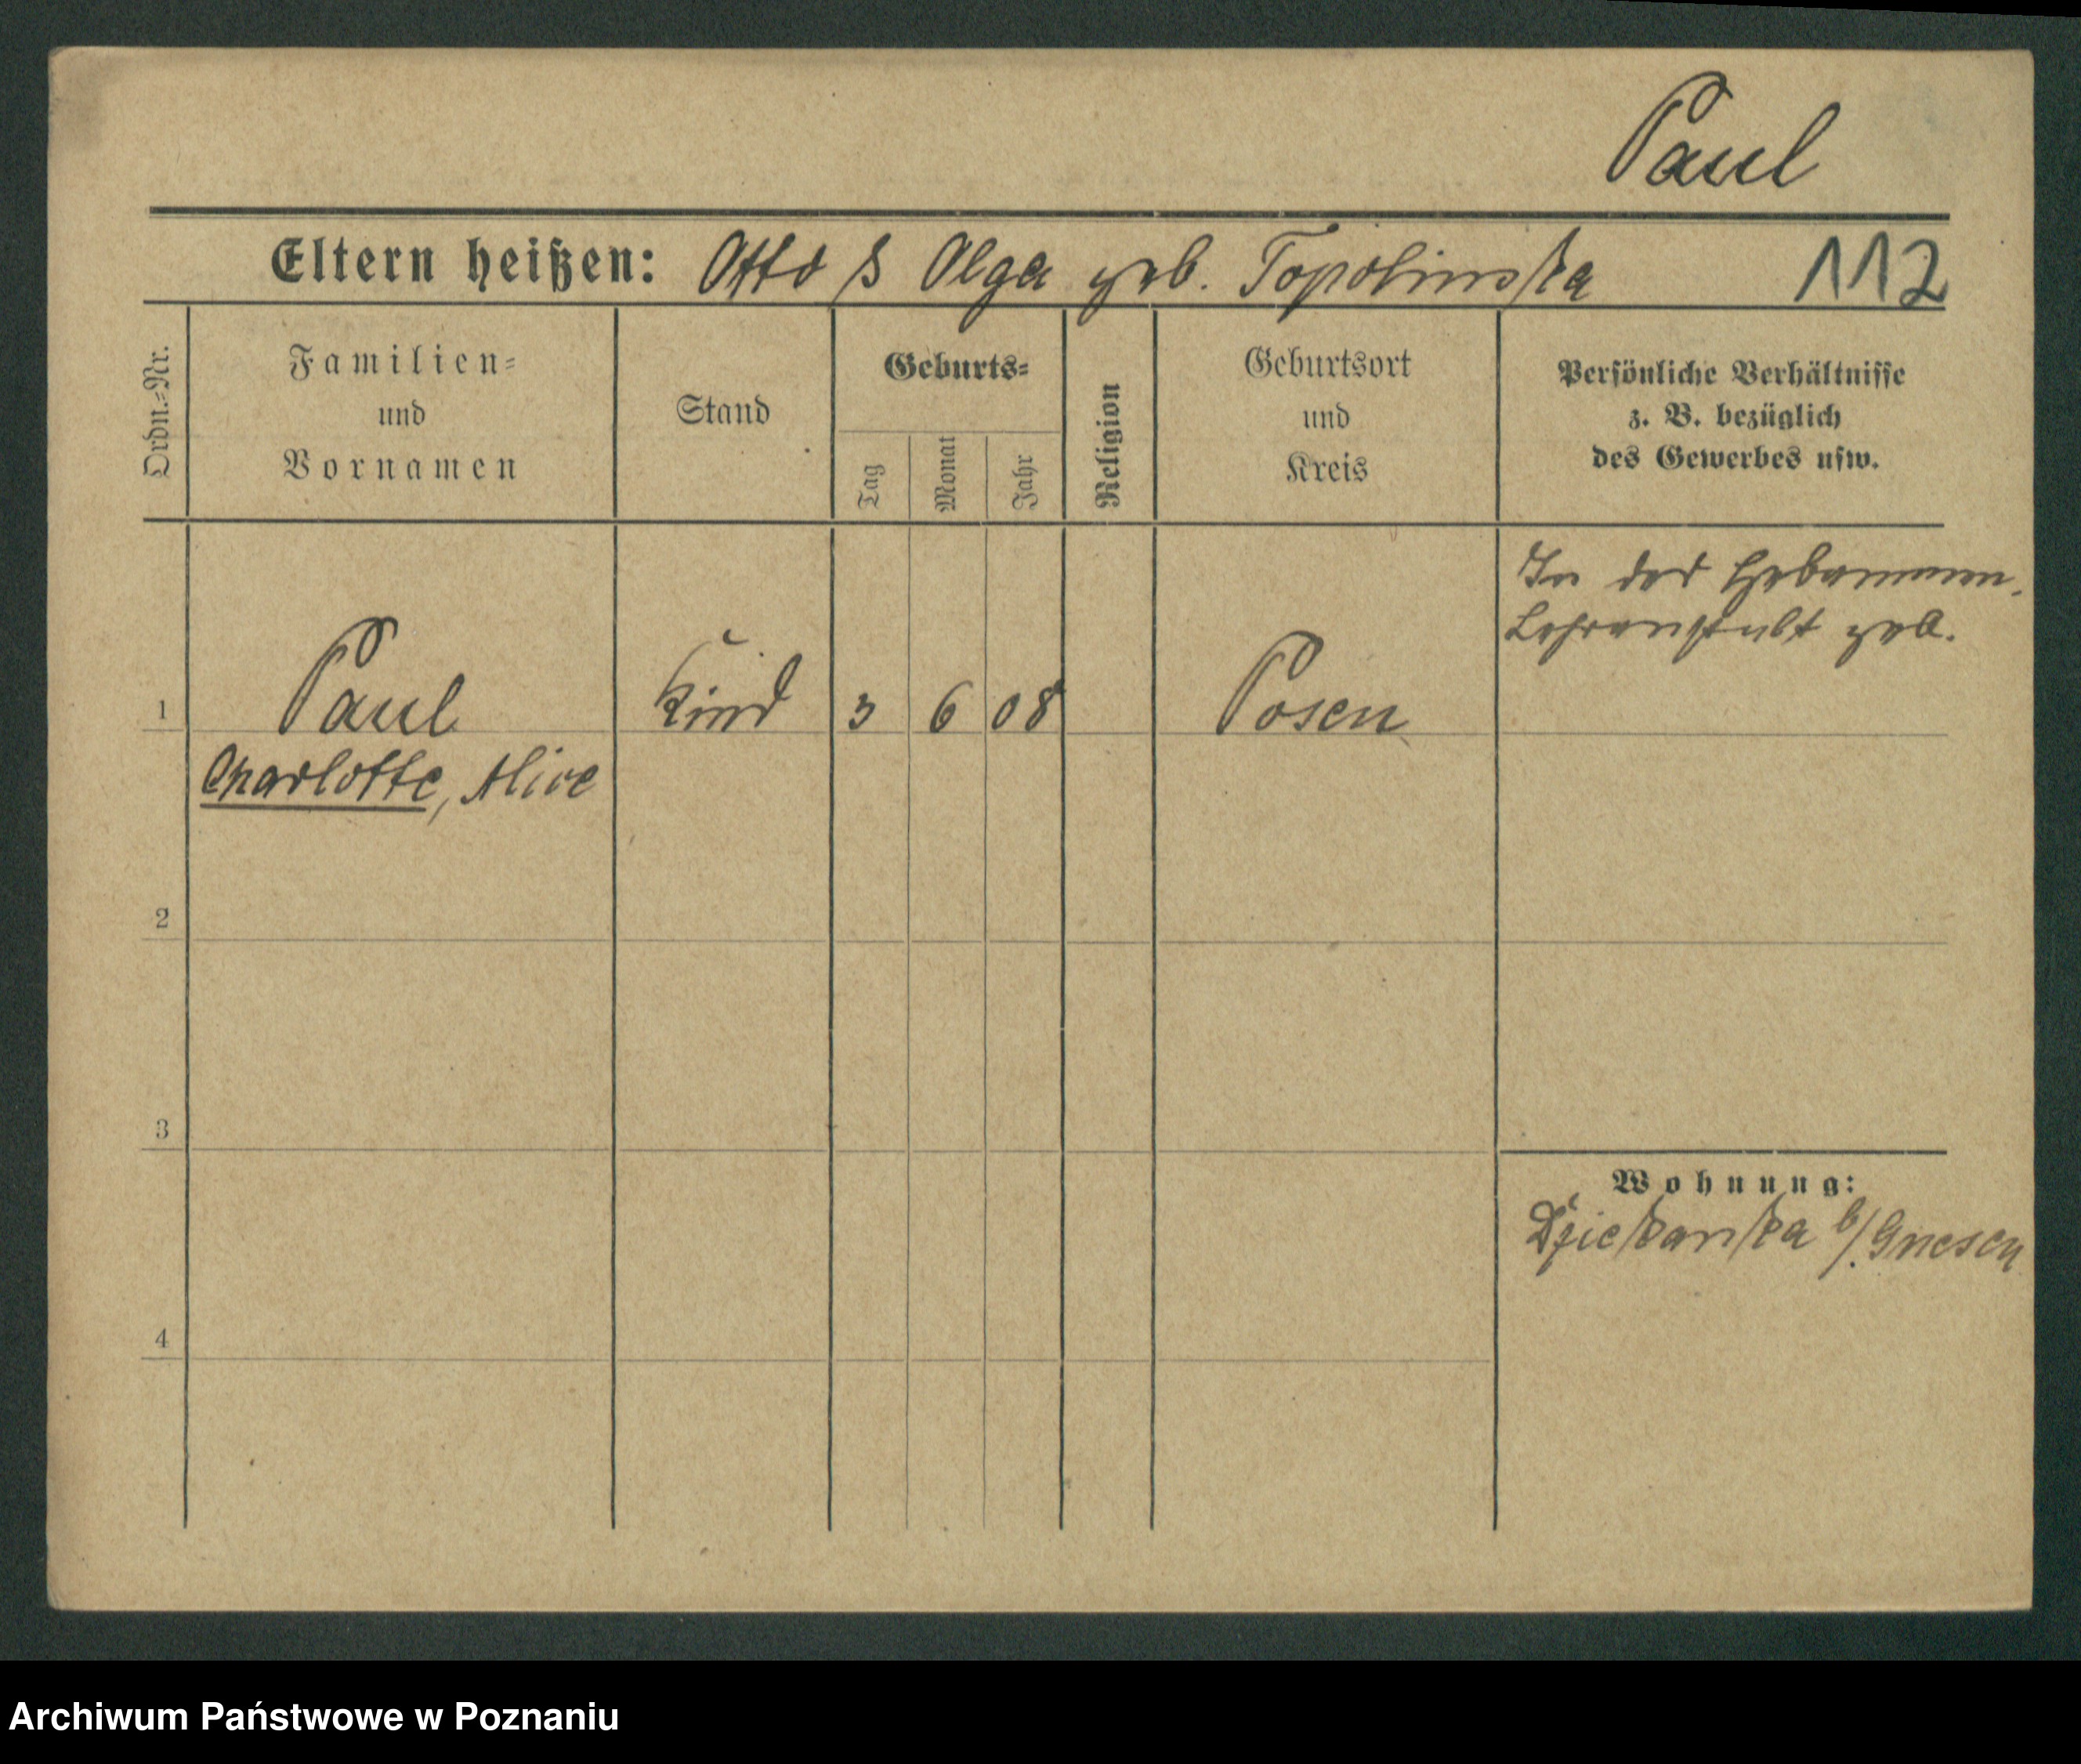 Paul
Eltern heißen: Otto & Olga geb. Topolinska 112
Ordn.-Nr.
Familien-
und
Vornamen
Stand
Geburts-
Tag
Monat
Jahr
Religion
Geburtsort
und
Kreis
Persönliche Verhältnisse
z. B. bezüglich
des Gewerbes usw.
In der Hebammen-
Lehranstalt geb.
1 Paul Kind 3 6 08 Posen
Charlotte, Alice
2
3
Wohnung:
Dziekanka b/. Gnesen
4
Archiwum Państwowe w Poznaniu